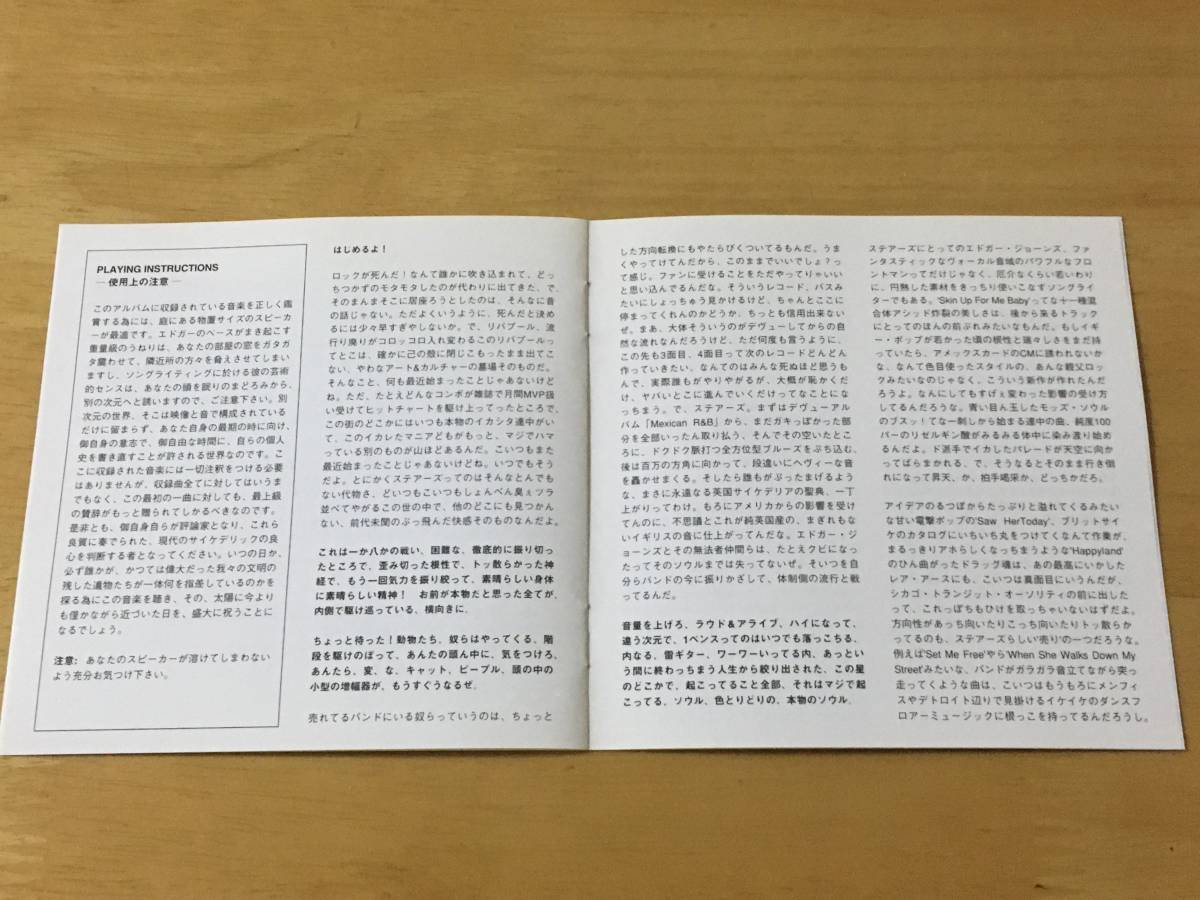 PLAYING INSTRUCTIONS
― 使用上の注意 ―
このアルバムに収録されている音楽を正しく鑑
賞する為には、庭にある物置サイズのスピーカ
ーが最適です。エドガーのベースがまき起こす
重量級のうねりは、あなたの部屋の窓をガタガ
タ震わせて、隣近所の方々を脅えさせてしまい
ますし、ソングライティングに於ける彼の芸術
的センスは、あなたの頭を眠りのまどろみから、
別の次元へと誘いますので、ご注意下さい。別
次元の世界、そこは映像と音で構成されている
だけに留まらず、あなた自身の最期の時に向け、
御自身の意志で、御自由な時間に、自らの個人
史を書き直すことが許される世界なのです。こ
こに収録された音楽には一切注釈をつける必要
はありませんが、収録曲全てに対してはいうま
でもなく、この最初の一曲に対しても、最上級
の賛辞がもっと贈られてしかるべきなのです。
是非とも、御自身自らが評論家となり、これら
良質に奏でられた、現代のサイケデリックの良
心を判断する者となってください。いつの日か、
必ず誰かが、かつては偉大だった我々の文明の
残した遺物たちが一体何を指差しているのかを
探る為にこの音楽を聴き、その、太陽に今より
も僅かながら近づいた日を、盛大に祝うことに
なるでしょう。
注意: あなたのスピーカーが溶けてしまわない
よう充分お気つけ下さい。
はじめるよ！
ロックが死んだ！なんて誰かに吹き込まれて、どっ
ちつかずのモタモタしたのが代わりに出てきた、で、
そのまんまそこに居座ろうとしたのは、そんなに昔
の話じゃない。ただよくいうように、死んだと決め
るには少々早すぎやしないか。で、リバプール、流
行り廃りがコロッコロ入れ変わるこのリバプールっ
てとこは、確かに己の殻に閉じこもったまま出てこ
ない、やわなアート&カルチャーの墓場そのものだ。
そんなこと、何も最近始まったことじゃあないけど
ね。ただ、たとえどんなコンボが雑誌で月間MVP扱
い受けてヒットチャートを駆け上ってったところで、
この街のどこかにはいつも本物のイカシタ連中がい
て、このイカレたマニアどもがもっと、マジでハマ
っている別のものが山ほどあるんだ。こいつもまた
最近始まったことじゃあないけどね。いつでもそう
だよ。とにかくステアーズってのはそんなとんでも
ない代物さ、どいつもこいつもしょんべん臭ぇツラ
並べてやがるこの世の中で、他のどこにも見つかん
ない、前代未聞のぶっ飛んだ快感そのものなんだよ。
これは一か八かの戦い、困難な、徹底的に振り切っ
たところで、歪み切った根性で、トッ散らかった神
経で、もう一回気力を振り絞って、素晴らしい身体
に素晴らしい精神！　お前が本物だと思った全てが、
内側で駆け巡っている、横向きに。
ちょっと待った！動物たち、奴らはやってくる、階
段を駆けのぼって、あんたの頭ん中に、気をつけろ、
あんたら、変、な、キャット、ピープル、頭の中の
小型の増幅器が、もうすぐうなるぜ。
売れてるバンドにいる奴らっていうのは、ちょっと
した方向転換にもやたらびくついてるもんだ。うま
くやってけてんだから、このままでいいでしょ？っ
て感じ。ファンに受けることをただやってりゃいい
と思い込んでるんだな。そういうレコード、バスみ
たいにしょっちゅう見かけるけど、ちゃんとここに
停まってくれんのかどうか、ちっとも信用出来ない
ぜ。まあ、大体そういうのがデヴューしてからの自
然な流れなんだろうけど、ただ何度も言うように、
この先も3面目、4面目って次のレコードどんどん
作っていきたい、なんてのはみんな死ぬほど思うも
んで、実際誰もがやりやがるが、大概が恥かくだ
け、ヤバいとこに進んでいくだけってなことにな
っちまう。で、ステアーズ。まずはデヴューアル
バム「Mexican R&B」から、まだガキっぽかった部
分を全部いったん取り払う、そんでその空いたとこ
ろに、ドクドク脈打つ全方位型ブルーズをぶち込む、
後は百万の方角に向かって、段違いにヘヴィーな音
を轟かせまくる。そしたら誰もがぶったまげるよう
な、まさに永遠なる英国サイケデリアの聖典、一丁
上がりってわけ。もろにアメリカからの影響を受け
てんのに、不思議とこれが純英国産の、まぎれもな
いイギリスの音に仕上がってんだな。エドガー・ジ
ョーンズとその無法者仲間らは、たとえクビになっ
たってそのソウルまでは失ってないぜ。そいつを自
分らバンドの今に振りかざして、体制側の流行と戦
ってるんだ。
音量を上げろ、ラウド＆アライブ、ハイになって、
違う次元で、1ペンスってのはいつでも落っこちる、
内なる、雷ギター、ワーワーいってる内、あっとい
う間に終わっちまう人生から絞り出された、この星
のどこかで、起こってること全部、それはマジで起
こってる、ソウル、色とりどりの、本物のソウル。
ステアーズにとってのエドガー・ジョーンズ、ファ
ンタスティックなヴォーカル音域のパワフルなフロ
ントマンってだけじゃなく、厄介なくらい若いわり
に、円熟した素材をきっちり使いこなすソングライ
ターでもある。'Skin Up For Me Baby'ってな十一種混
合体アシッド炸裂の美しさは、後から来るトラック
にとってのほんの前ぶれみたいなもんだ。もしイギ
ー・ポップが若かった頃の根性と瑞々しさをまだ持
っていたら、アメックスカードのCMに誘われないか
な、なんて色目使ったスタイルの、あんな親父ロッ
クみたいなのじゃなく、こういう新作が作れたんだ
ろうよ。なんにしてもすげぇ変わった影響の受け方
してるんだろうな。青い目ん玉したモッズ・ソウル
のブスッ！てな一刺しから始まる連中の曲、純度100
パーのリゼルギン酸がみるみる体中に染み渡り始め
るんだよ。ド派手でイカしたパレードが天空に向か
ってばらまかれる、で、そうなるとそのまま行き倒
れになって昇天、か、拍手喝采か、どっちかだろ。
アイデアのるつぼからたっぷりと溢れてくるみたい
な甘い電撃ポップの'Saw HerToday'、ブリットサイ
ケのカタログにいちいち丸をつけてくなんて作業が、
まるっきりアホらしくなっちまうような'Happyland'
のひん曲がったドラッグ魂は、あの最高にいかした
レア・アースにも、こいつは真面目にいうんだが、
シカゴ・トランジット・オーソリティの前に出した
って、これっぽちもひけを取っちゃいないはずだよ。
方向性があっち向いたりこっち向いたりトッ散らか
ってるのも、ステアーズらしい'売り'の一つだろうな。
例えば'Set Me Free'やら'When She Walks Down My
Street'みたいな、バンドがガラガラ音立てながら突っ
走ってくような曲は、こいつはもうもろにメンフィ
スやデトロイト辺りで見掛けるイケイケのダンスフ
ロアーミュージックに根っこを持ってるんだろうし。